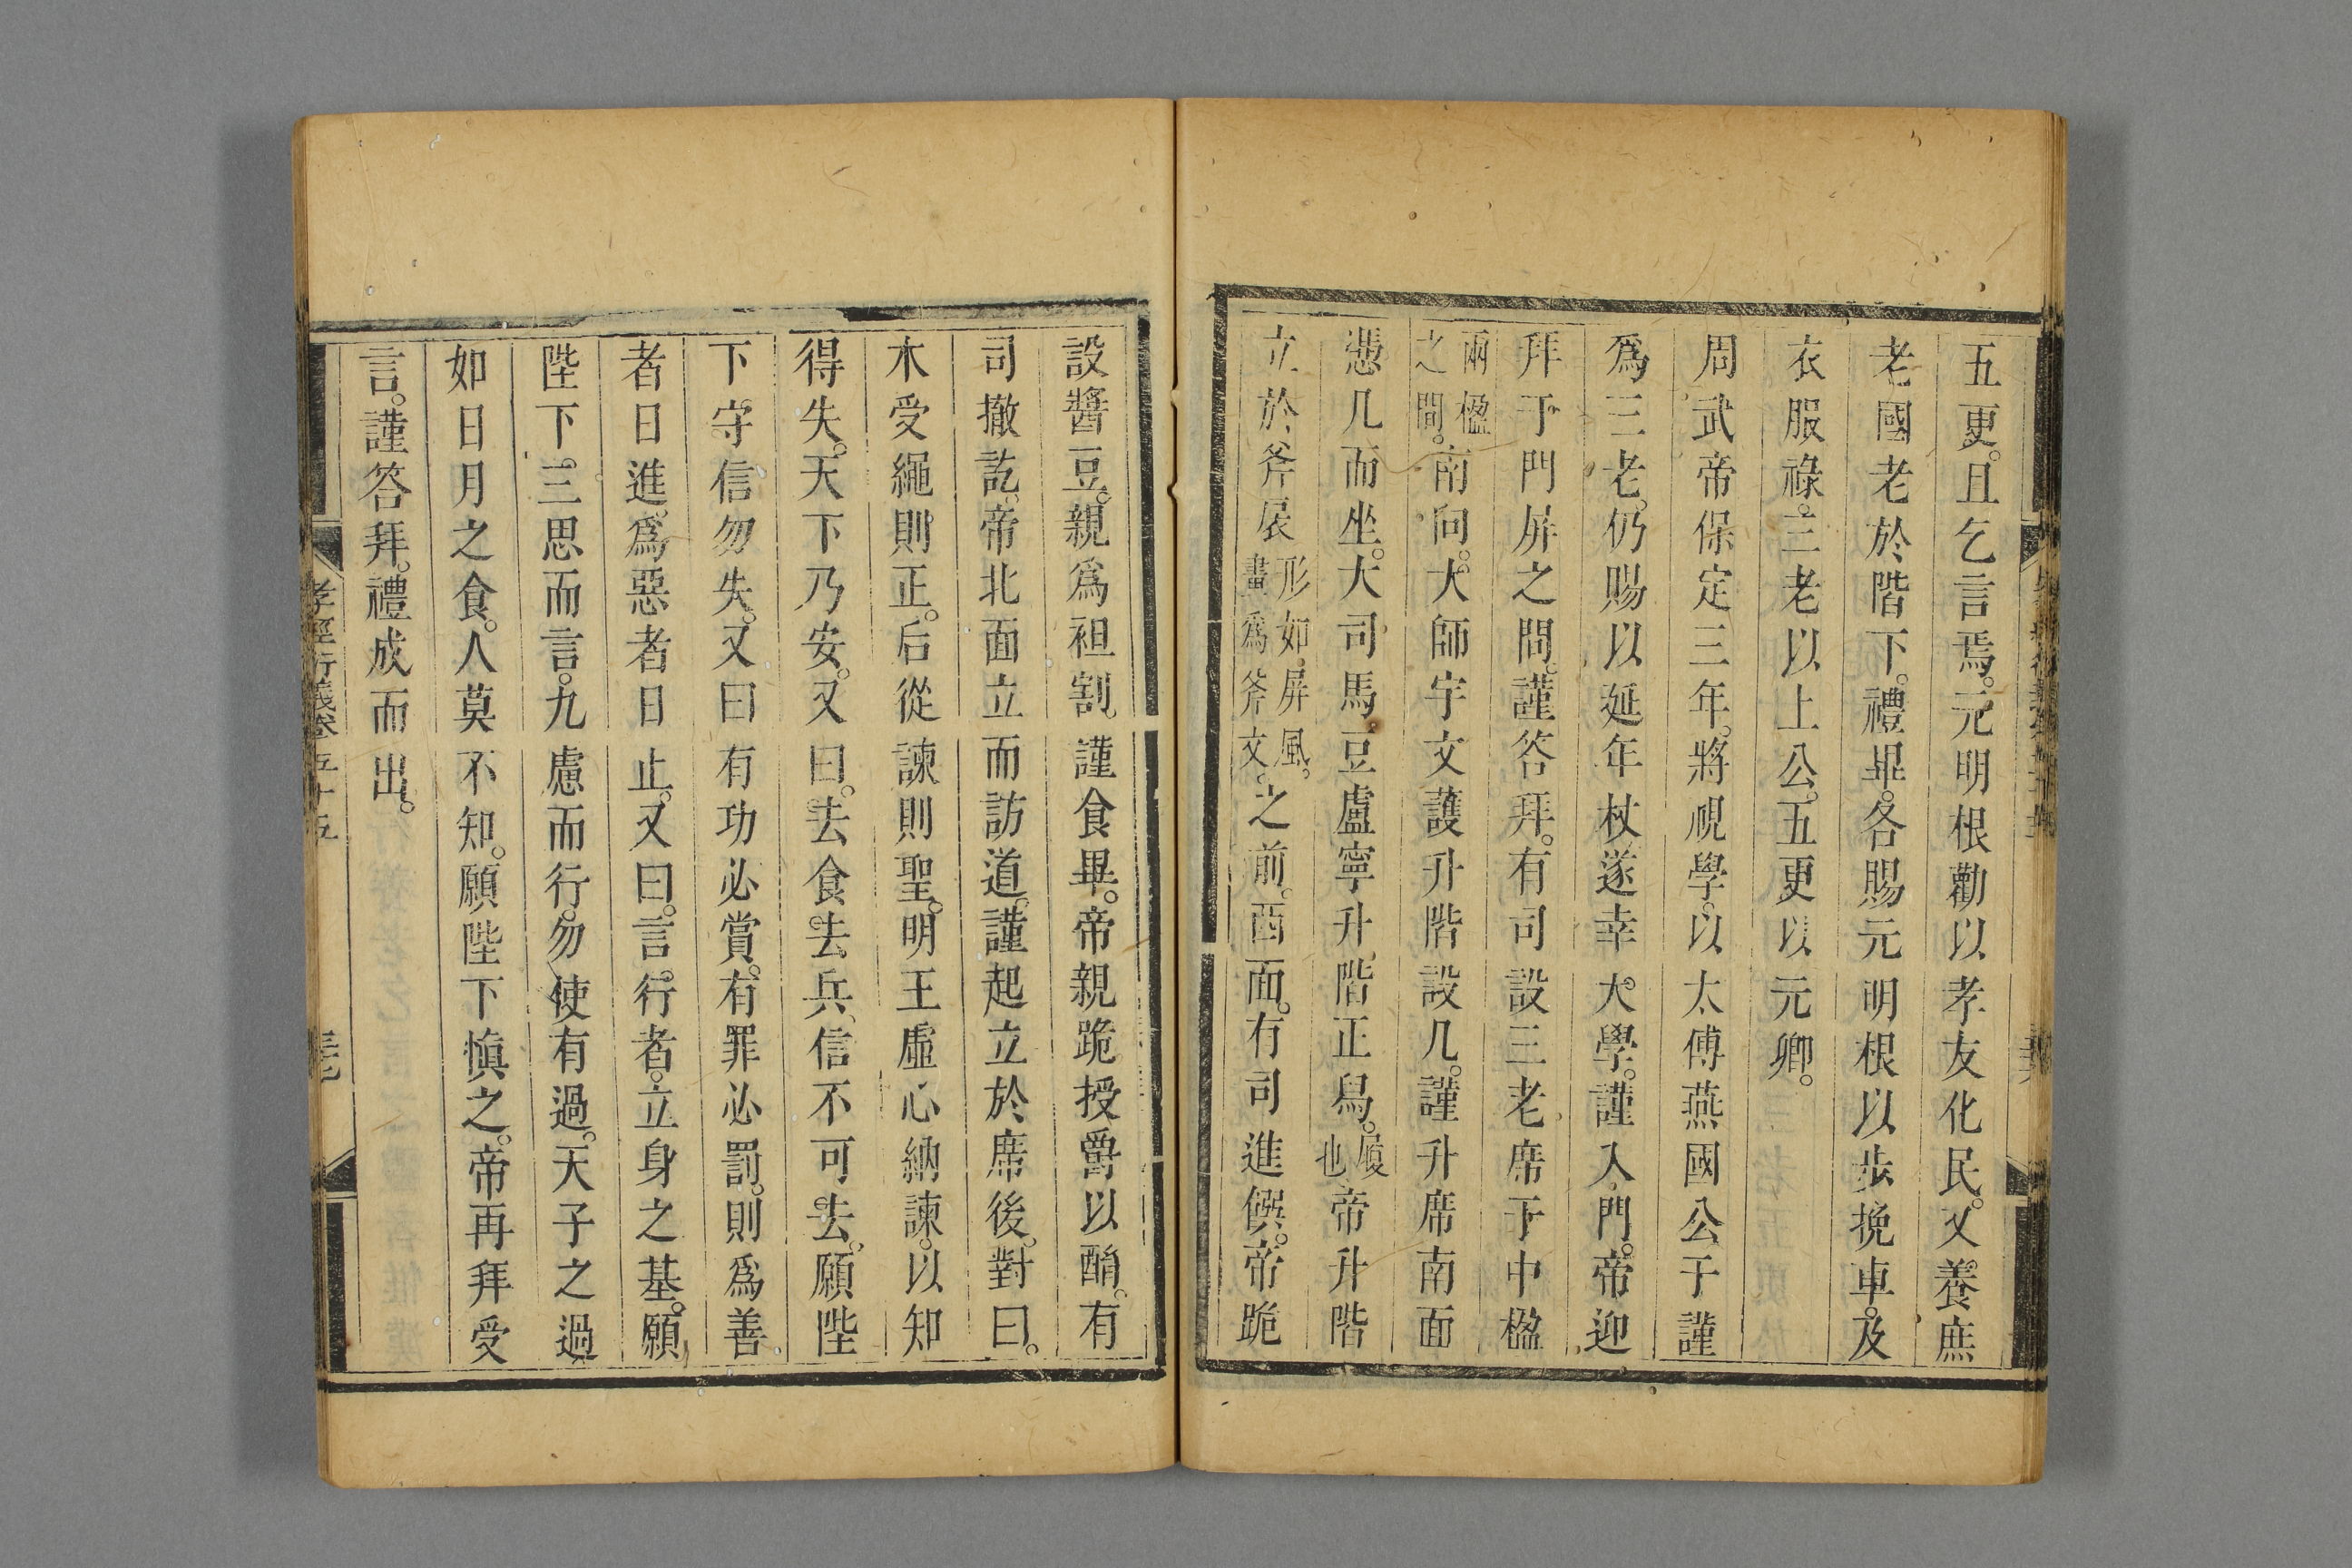 五更。且乞言焉。元明根勸以孝友化民。又養庶
老國老於階下。禮畢。各賜元明根以步挽車。及
衣服祿。三老以上公。五更以元卿。
周武帝保定三年。將視學。以太傅燕國公于謹
爲三老。仍賜以延年杖遂幸大學。謹入門。帝迎
拜于門屏之間。謹答拜。有司設三老席于中楹
兩楹之間。南向。大師宇文護升階設几。謹升席南面
憑几而坐。大司馬豆盧寧升階正舄。履也帝升階
立於斧扆形如屏風。畫爲斧文。之前。西面。有司進饌。帝跪
設醬豆。親爲袒割。謹食畢。帝親跪授爵以酳。有
司撤訖。帝北面立而訪道。謹起立於席後。對曰。
木受繩則正。后從諫則聖。明王虛心納諫。以知
得失。天下乃安。又曰。去食去兵。信不可去。願陛
下守信勿失。又曰有功必賞。有罪必罰。則爲善
者日進。爲惡者日止。又曰。言行者。立身之基。願
陛下。三思而言。九慮而行。勿使有過。天子之過
如日月之食。人莫不知。願陛下愼之。帝再拜受
言。謹答拜。禮成而出。
孝經衍義卷五十五